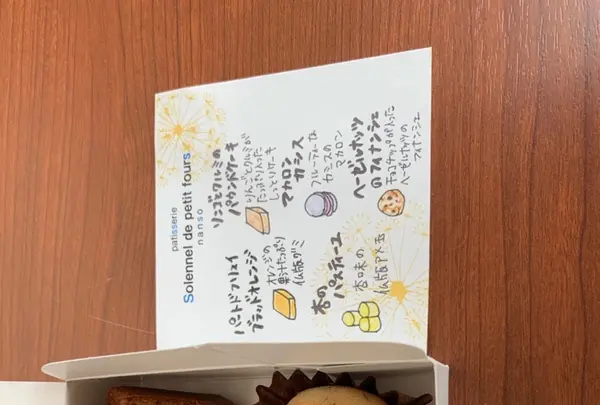 patisserie
Solennel de petit fours
nanso
リンゴとクルミの
パウンドケーキ
りんごとクルミが
たっぷり入った
しっとりケーキ
マカロン
カシス
フルーティーな
カシスの
マカロン
ヘーゼルナッツ
のフィナンシェ
チョコチップが入った
ヘーゼルナッツの
フィナンシェ
パートドフリュイ
ブラッドオレンジ
オレンジの
果汁たっぷり
仏版グミ
杏の
パスティーユ
杏味の
仏版アメ玉